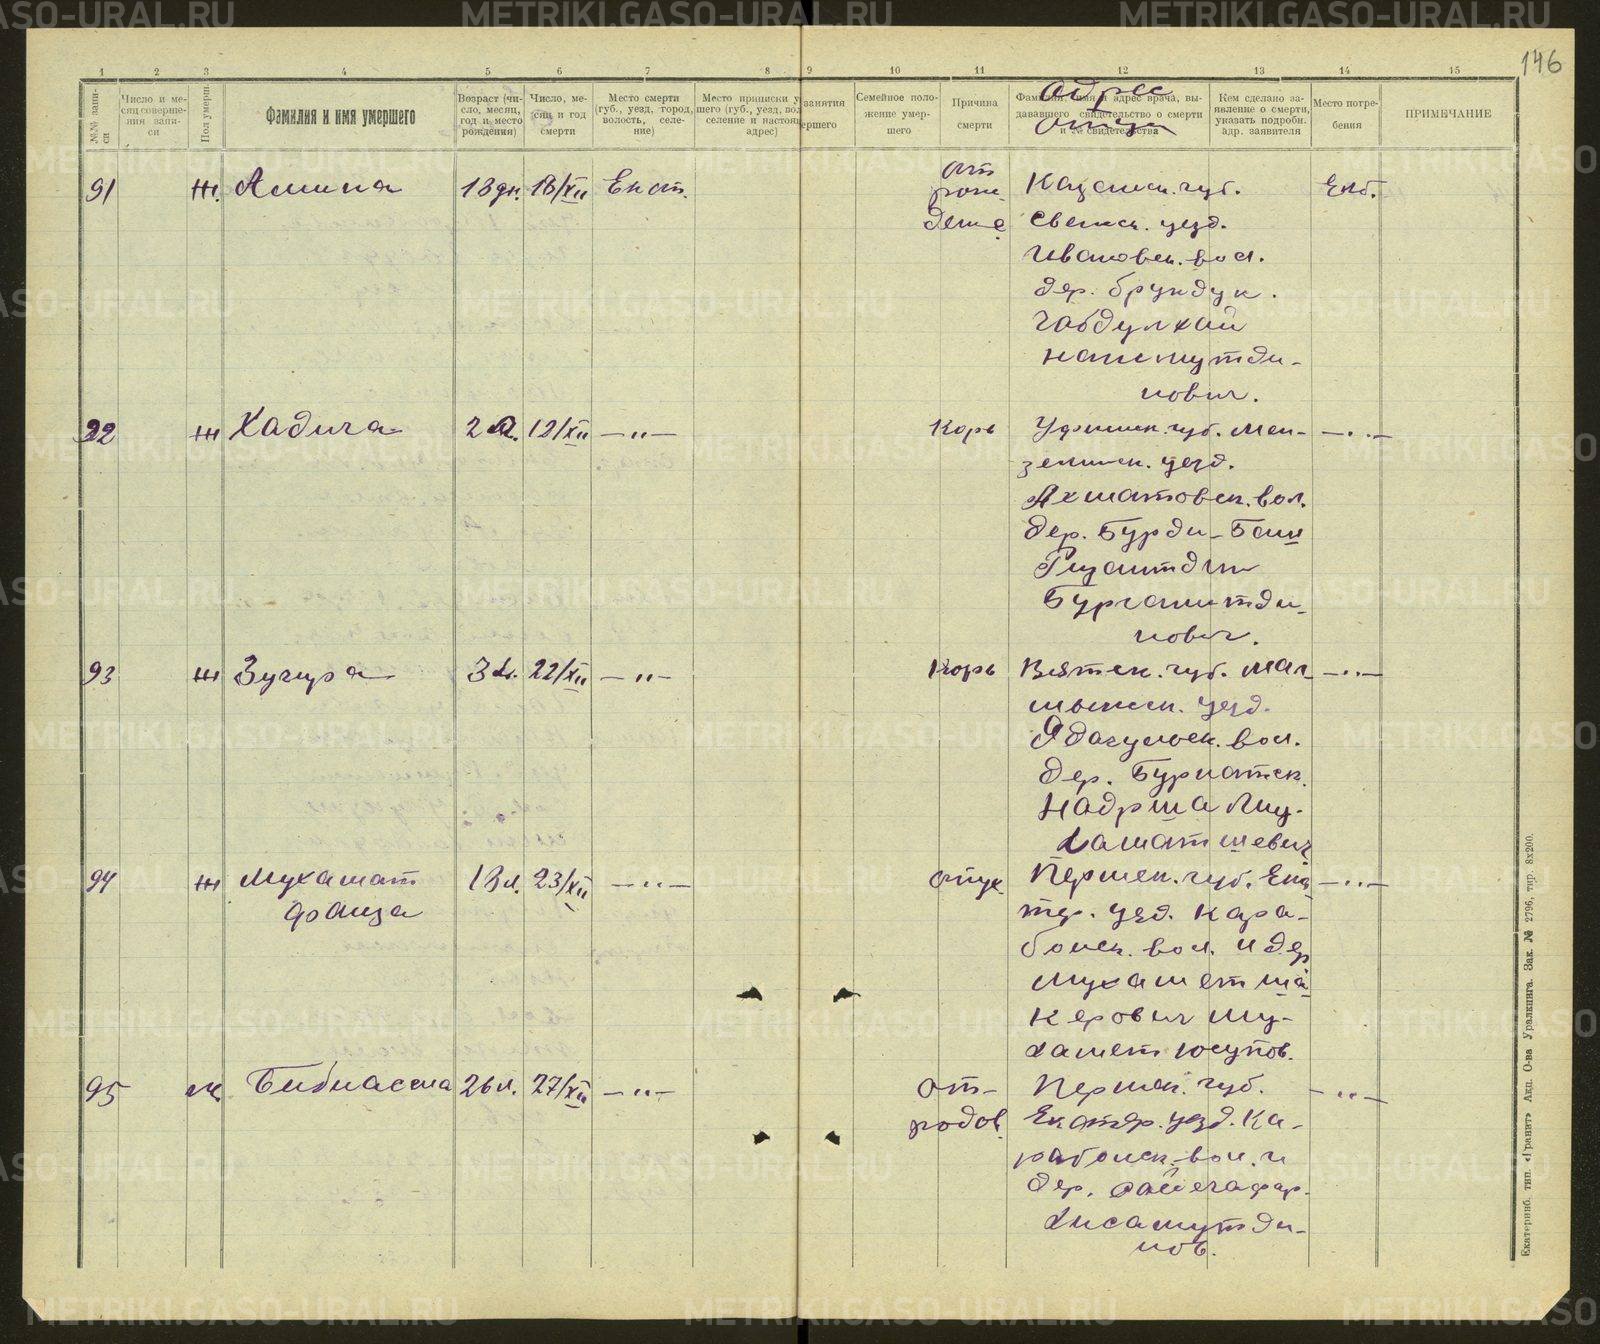 146
1 2 3 4 5 6 7 8 9 10 11 12 13 14 15
№№ записи
Число и месяц совершения записи
Пол умерш.
Фамилия и имя умершего
Возраст (число, месяц, год и место рождения)
Число, месяц и год смерти
Место смерти (губ., уезд, город, волость, селение)
Место приписки умершего (губ., уезд, вол., селение и настоящ. адрес)
занятия умершего
Семейное положение умершего
Причина смерти
Фамилия, имя и адрес врача, выдававшего свидетельство о смерти и № свидетельства
Адрес
отца
Кем сделано заявление о смерти, указать подробн. адр. заявителя
Место погребения
ПРИМЕЧАНИЕ
91 Ж. Амина 13 дн. 13/XII Екат. от рож дение Казанск. губ. Екб.
Свежск. уезд.
Ивановск. вол.
дер. Брундук.
Габдулхай
нажмутди-
нович.
92 Ж Хадича 2 л. 12/XII —"— Корь Уфимск. губ. Мен- —"—
зелинск. уезд.
Ахматовск. вол.
дер. Бурди-Баш
Бурганитди-
нович.
93 Ж Зугура 3 л. 22/XII —"— Корь Вятск. губ. Мал- —"—
мыжск. уезд.
вол.
дер.
Надрша Му-
хаматшевич
94 Ж Мухамат 13 л. 23/XII —"— опух. Пермск. губ. Ека- —"—
фаиза тер. уезд. Кара-
больск. вол. и дер
Мухаметша-
керович Му-
хамет Юсупов.
95 Ж Бибиасма 26 л. 27/XII —"— от- Пермск. губ. —"—
родов. Екатер. уезд. Ка-
рабольск. вол. и
дер.
Хисамутди-
нов.
Екатеринб. тип. «Гранит» Акц. О-ва Уралкнига. Зак. № 2796, тир. 8х200.
METRIKI.GASO-URAL.RU